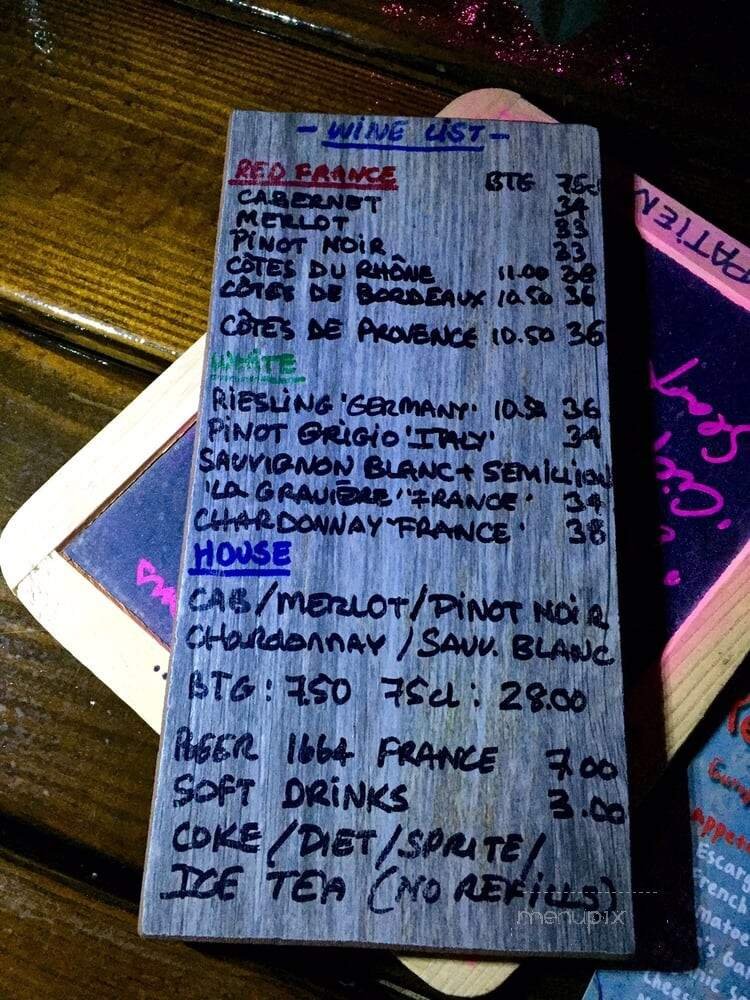 - WINE LIST -
RED FRANCE BTG 75cl
CABERNET 34
MERLOT 33
PINOT NOIR 33
CÔTES DU RHÔNE 11.00 38
CÔTES DE BORDEAUX 10.50 36
CÔTES DE PROVENCE 10.50 36
WHITE
RIESLING 'GERMANY' 10.50 36
PINOT GRIGIO 'ITALY' 34
SAUVIGNON BLANC + SEMILLION
'LA GRAVIÈRE' 'FRANCE' 34
CHARDONNAY 'FRANCE' 38
HOUSE
CAB/MERLOT/PINOT NOIR
CHARDONNAY / SAUV. BLANC
BTG : 7.50 75cl : 28.00
BEER 1664 FRANCE 7.00
SOFT DRINKS 3.00
COKE/DIET/SPRITE/
ICE TEA (NO REFILLS)
PATIEN
menupix
Escar
French